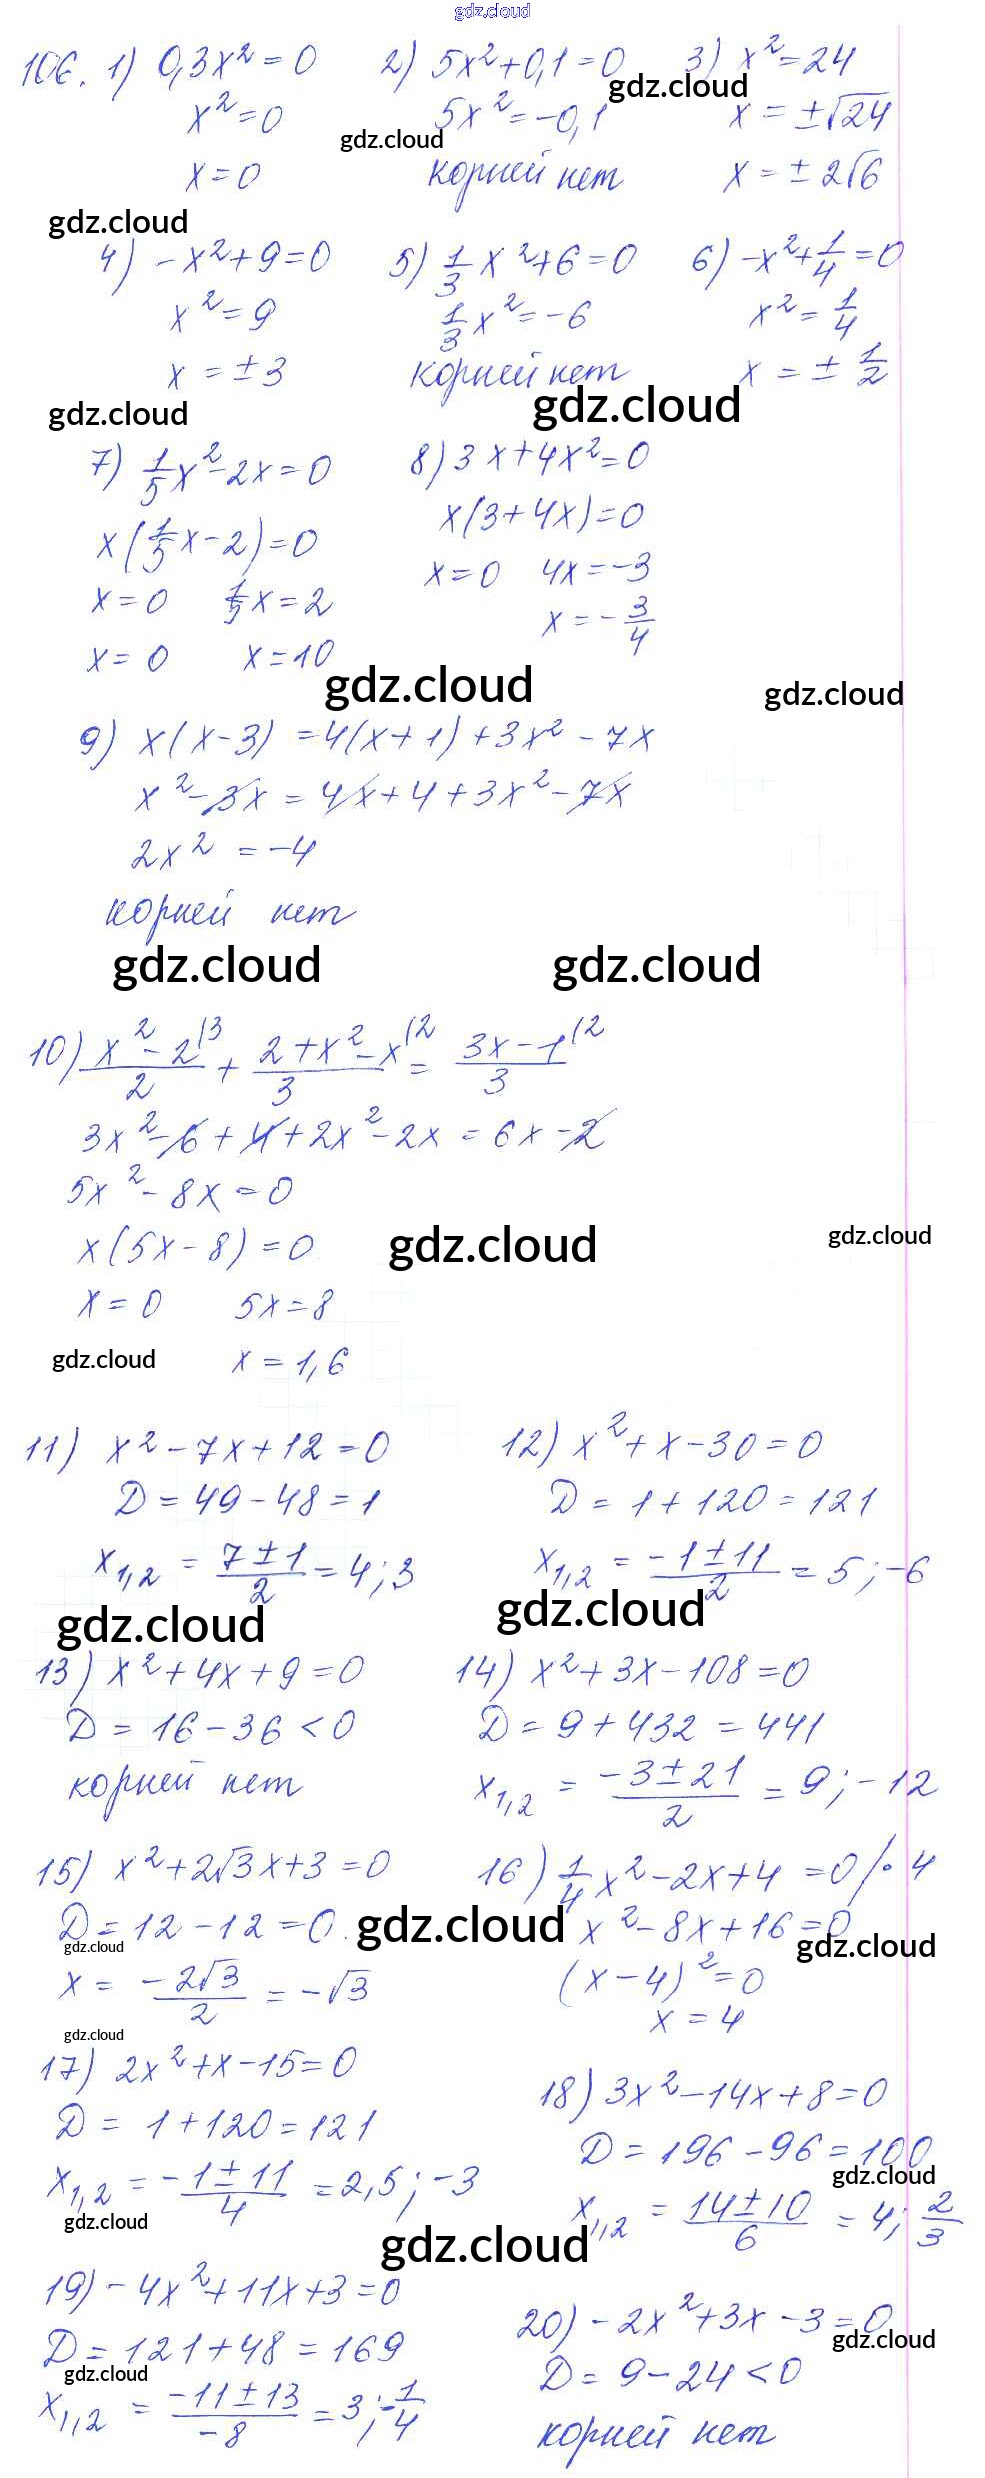 gdz.cloud
106. 1) 0,3x² = 0
x² = 0
x = 0
2) 5x² + 0,1 = 0
5x² = -0,1
корней нет
3) x² = 24
x = ±√24
x = ±2√6
gdz.cloud
gdz.cloud
gdz.cloud
4) -x² + 9 = 0
x² = 9
x = ±3
5) 1/3 x² + 6 = 0
1/3 x² = -6
корней нет
6) -x² + 1/4 = 0
x² = 1/4
x = ± 1/2
gdz.cloud
gdz.cloud
7) 1/5 x² - 2x = 0
x(1/5 x - 2) = 0
x = 0 1/5 x = 2
x = 0 x = 10
8) 3x + 4x² = 0
x(3 + 4x) = 0
x = 0 4x = -3
x = - 3/4
gdz.cloud
gdz.cloud
9) x(x - 3) = 4(x + 1) + 3x² - 7x
x² - 3x = 4x + 4 + 3x² - 7x
2x² = -4
корней нет
gdz.cloud
gdz.cloud
10) (x² - 2)/2 (3 + (2 + x² - x)/3 (2 = (3x - 1)/3 (2
3x² - 6 + 4 + 2x² - 2x = 6x - 2
5x² - 8x = 0
x(5x - 8) = 0
x = 0 5x = 8
x = 1,6
gdz.cloud
gdz.cloud
gdz.cloud
11) x² - 7x + 12 = 0
D = 49 - 48 = 1
x1,2 = (7 ± 1)/2 = 4; 3
12) x² + x - 30 = 0
D = 1 + 120 = 121
x1,2 = (-1 ± 11)/2 = 5; -6
gdz.cloud
gdz.cloud
13) x² + 4x + 9 = 0
D = 16 - 36 < 0
корней нет
14) x² + 3x - 108 = 0
D = 9 + 432 = 441
x1,2 = (-3 ± 21)/2 = 9; -12
15) x² + 2√3x + 3 = 0
D = 12 - 12 = 0
x = (-2√3)/2 = -√3
16) 1/4 x² - 2x + 4 = 0 /• 4
x² - 8x + 16 = 0
(x - 4)² = 0
x = 4
gdz.cloud
gdz.cloud
gdz.cloud
gdz.cloud
17) 2x² + x - 15 = 0
D = 1 + 120 = 121
x1,2 = (-1 ± 11)/4 = 2,5; -3
18) 3x² - 14x + 8 = 0
D = 196 - 96 = 100
x1,2 = (14 ± 10)/6 = 4; 2/3
gdz.cloud
gdz.cloud
gdz.cloud
19) -4x² + 11x + 3 = 0
D = 121 + 48 = 169
x1,2 = (-11 ± 13)/-8 = 3; -1/4
20) -2x² + 3x - 3 = 0
D = 9 - 24 < 0
корней нет
gdz.cloud
gdz.cloud